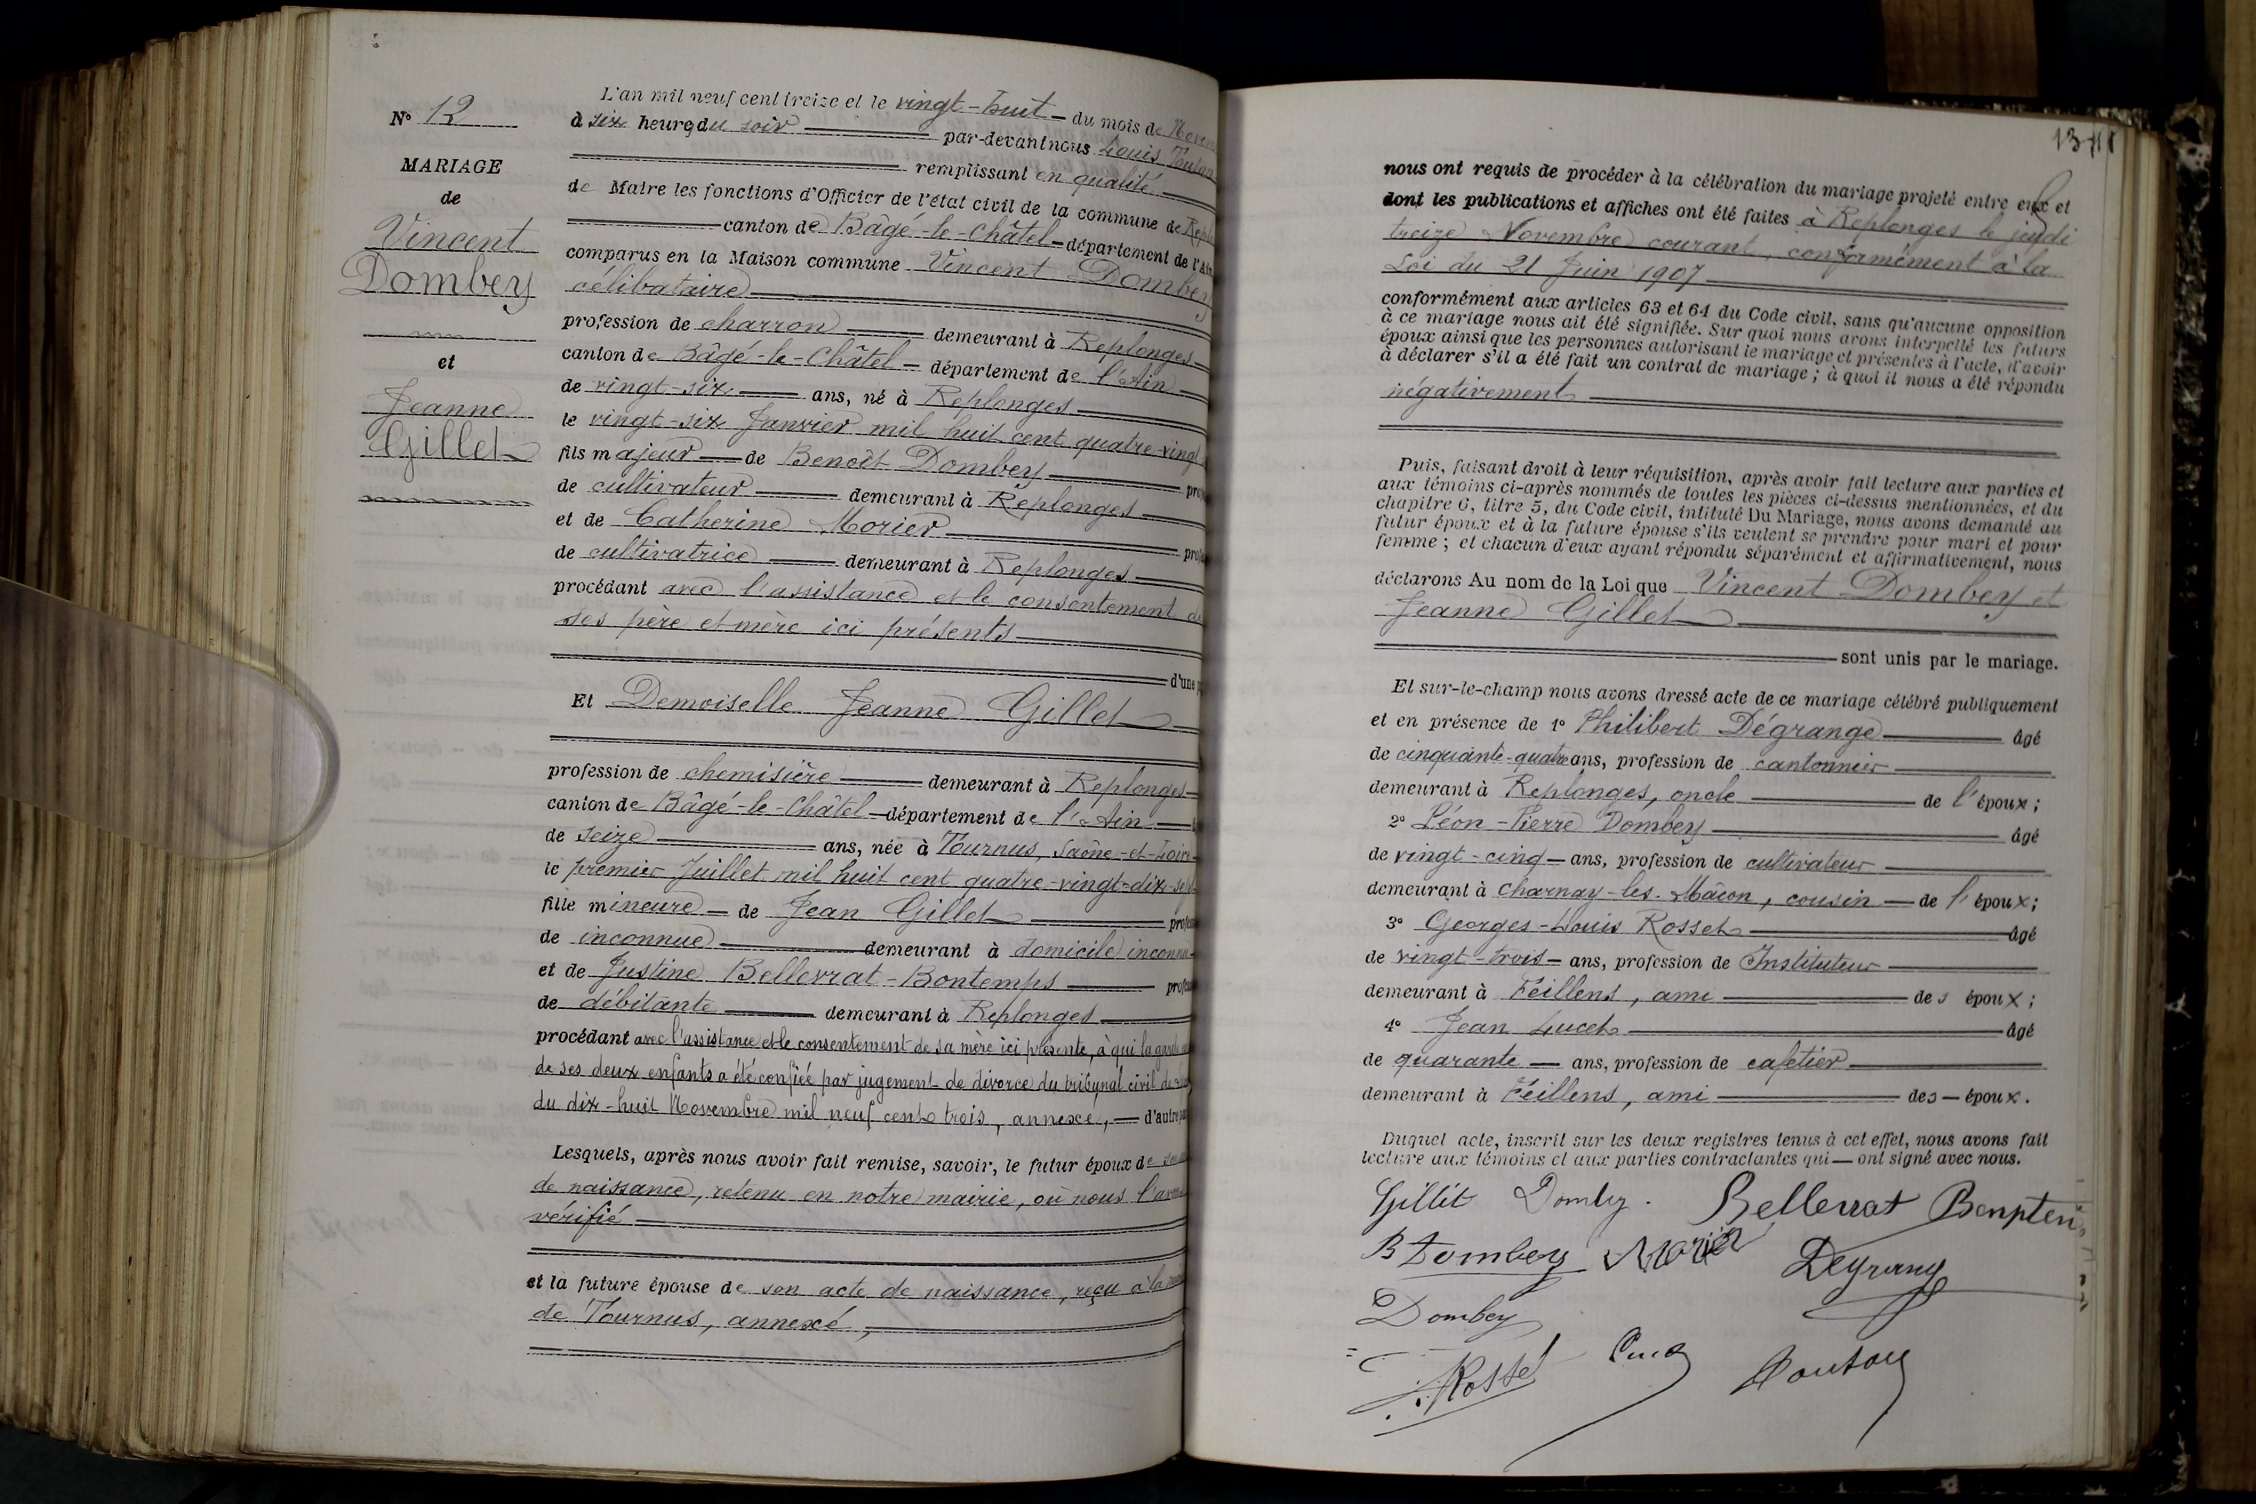 N° 12
MARIAGE
de
Vincent
Dombey
et
Jeanne
Gillet
L'an mil neuf cent treize et le vingt-huit du mois de
à six heures du soir par-devant nous Louis
remplissant en qualité
de Maire les fonctions d'Officier de l'état civil de la commune de
canton de Bâgé-le-Châtel département de
comparus en la Maison commune Vincent Dombey
célibataire
profession de charron demeurant à Replonges
canton de Bâgé-le-Châtel département de l'Ain
de vingt-six ans, né à Replonges
le vingt-six Janvier mil huit cent quatre-vingt
fils majeur de Benoît Dombey
de cultivateur demeurant à Replonges
et de Catherine Morier
de cultivatrice demeurant à Replonges
procédant avec l'assistance et le consentement de
ses père et mère ici présents
d'une
Et Demoiselle Jeanne Gillet
profession de chemisière demeurant à Replonges
canton de Bâgé-le-Châtel département de l'Ain
de seize ans, née à Tournus, Saône-et-Loire
le premier Juillet mil huit cent quatre-vingt-dix-sept
fille mineure de Jean Gillet
de inconnue demeurant à domicile inconnu
et de Justine Bellevrat-Bontemps
de débitante demeurant à Replonges
procédant avec l'assistance et le consentement de sa mère ici présente, à qui la garde
de ses deux enfants a été confiée par jugement de divorce du tribunal civil de
du dix-huit Novembre mil neuf cent trois, annexé, d'autre
Lesquels, après nous avoir fait remise, savoir, le futur époux de
de naissance, retenu en notre mairie, où nous l'avons
vérifié
et la future épouse de son acte de naissance, reçu à la
de Tournus, annexé,
nous ont requis de procéder à la célébration du mariage projeté entre eux et
dont les publications et affiches ont été faites à Replonges le jeudi
treize Novembre courant, conformément à la
Loi du 21 Juin 1907
conformément aux articles 63 et 64 du Code civil, sans qu'aucune opposition
à ce mariage nous ait été signifiée. Sur quoi nous avons interpellé les futurs
époux ainsi que les personnes autorisant le mariage et présentes à l'acte, d'avoir
à déclarer s'il a été fait un contrat de mariage ; à quoi il nous a été répondu
négativement
Puis, faisant droit à leur réquisition, après avoir fait lecture aux parties et
aux témoins ci-après nommés de toutes les pièces ci-dessus mentionnées, et du
chapitre 6, titre 5, du Code civil, intitulé Du Mariage, nous avons demandé au
futur époux et à la future épouse s'ils veulent se prendre pour mari et pour
femme ; et chacun d'eux ayant répondu séparément et affirmativement, nous
déclarons Au nom de la Loi que Vincent Dombey et
Jeanne Gillet
sont unis par le mariage.
Et sur-le-champ nous avons dressé acte de ce mariage célébré publiquement
et en présence de 1° Philibert Dégrange âgé
de cinquante-quatre ans, profession de cantonnier
demeurant à Replonges, oncle de l'époux ;
2° Léon-Pierre Dombey âgé
de vingt-cinq ans, profession de cultivateur
demeurant à Charnay-les-Mâcon, cousin de l'époux ;
3° Georges-Louis Rosset âgé
de vingt-trois ans, profession de Instituteur
demeurant à Féillens, ami des époux ;
4° Jean Lucet âgé
de quarante ans, profession de cafetier
demeurant à Féillens, ami des époux.
Duquel acte, inscrit sur les deux registres tenus à cet effet, nous avons fait
lecture aux témoins et aux parties contractantes qui ont signé avec nous.
Gillet Dombey. Bellevrat
B Dombey Morier
Dombey